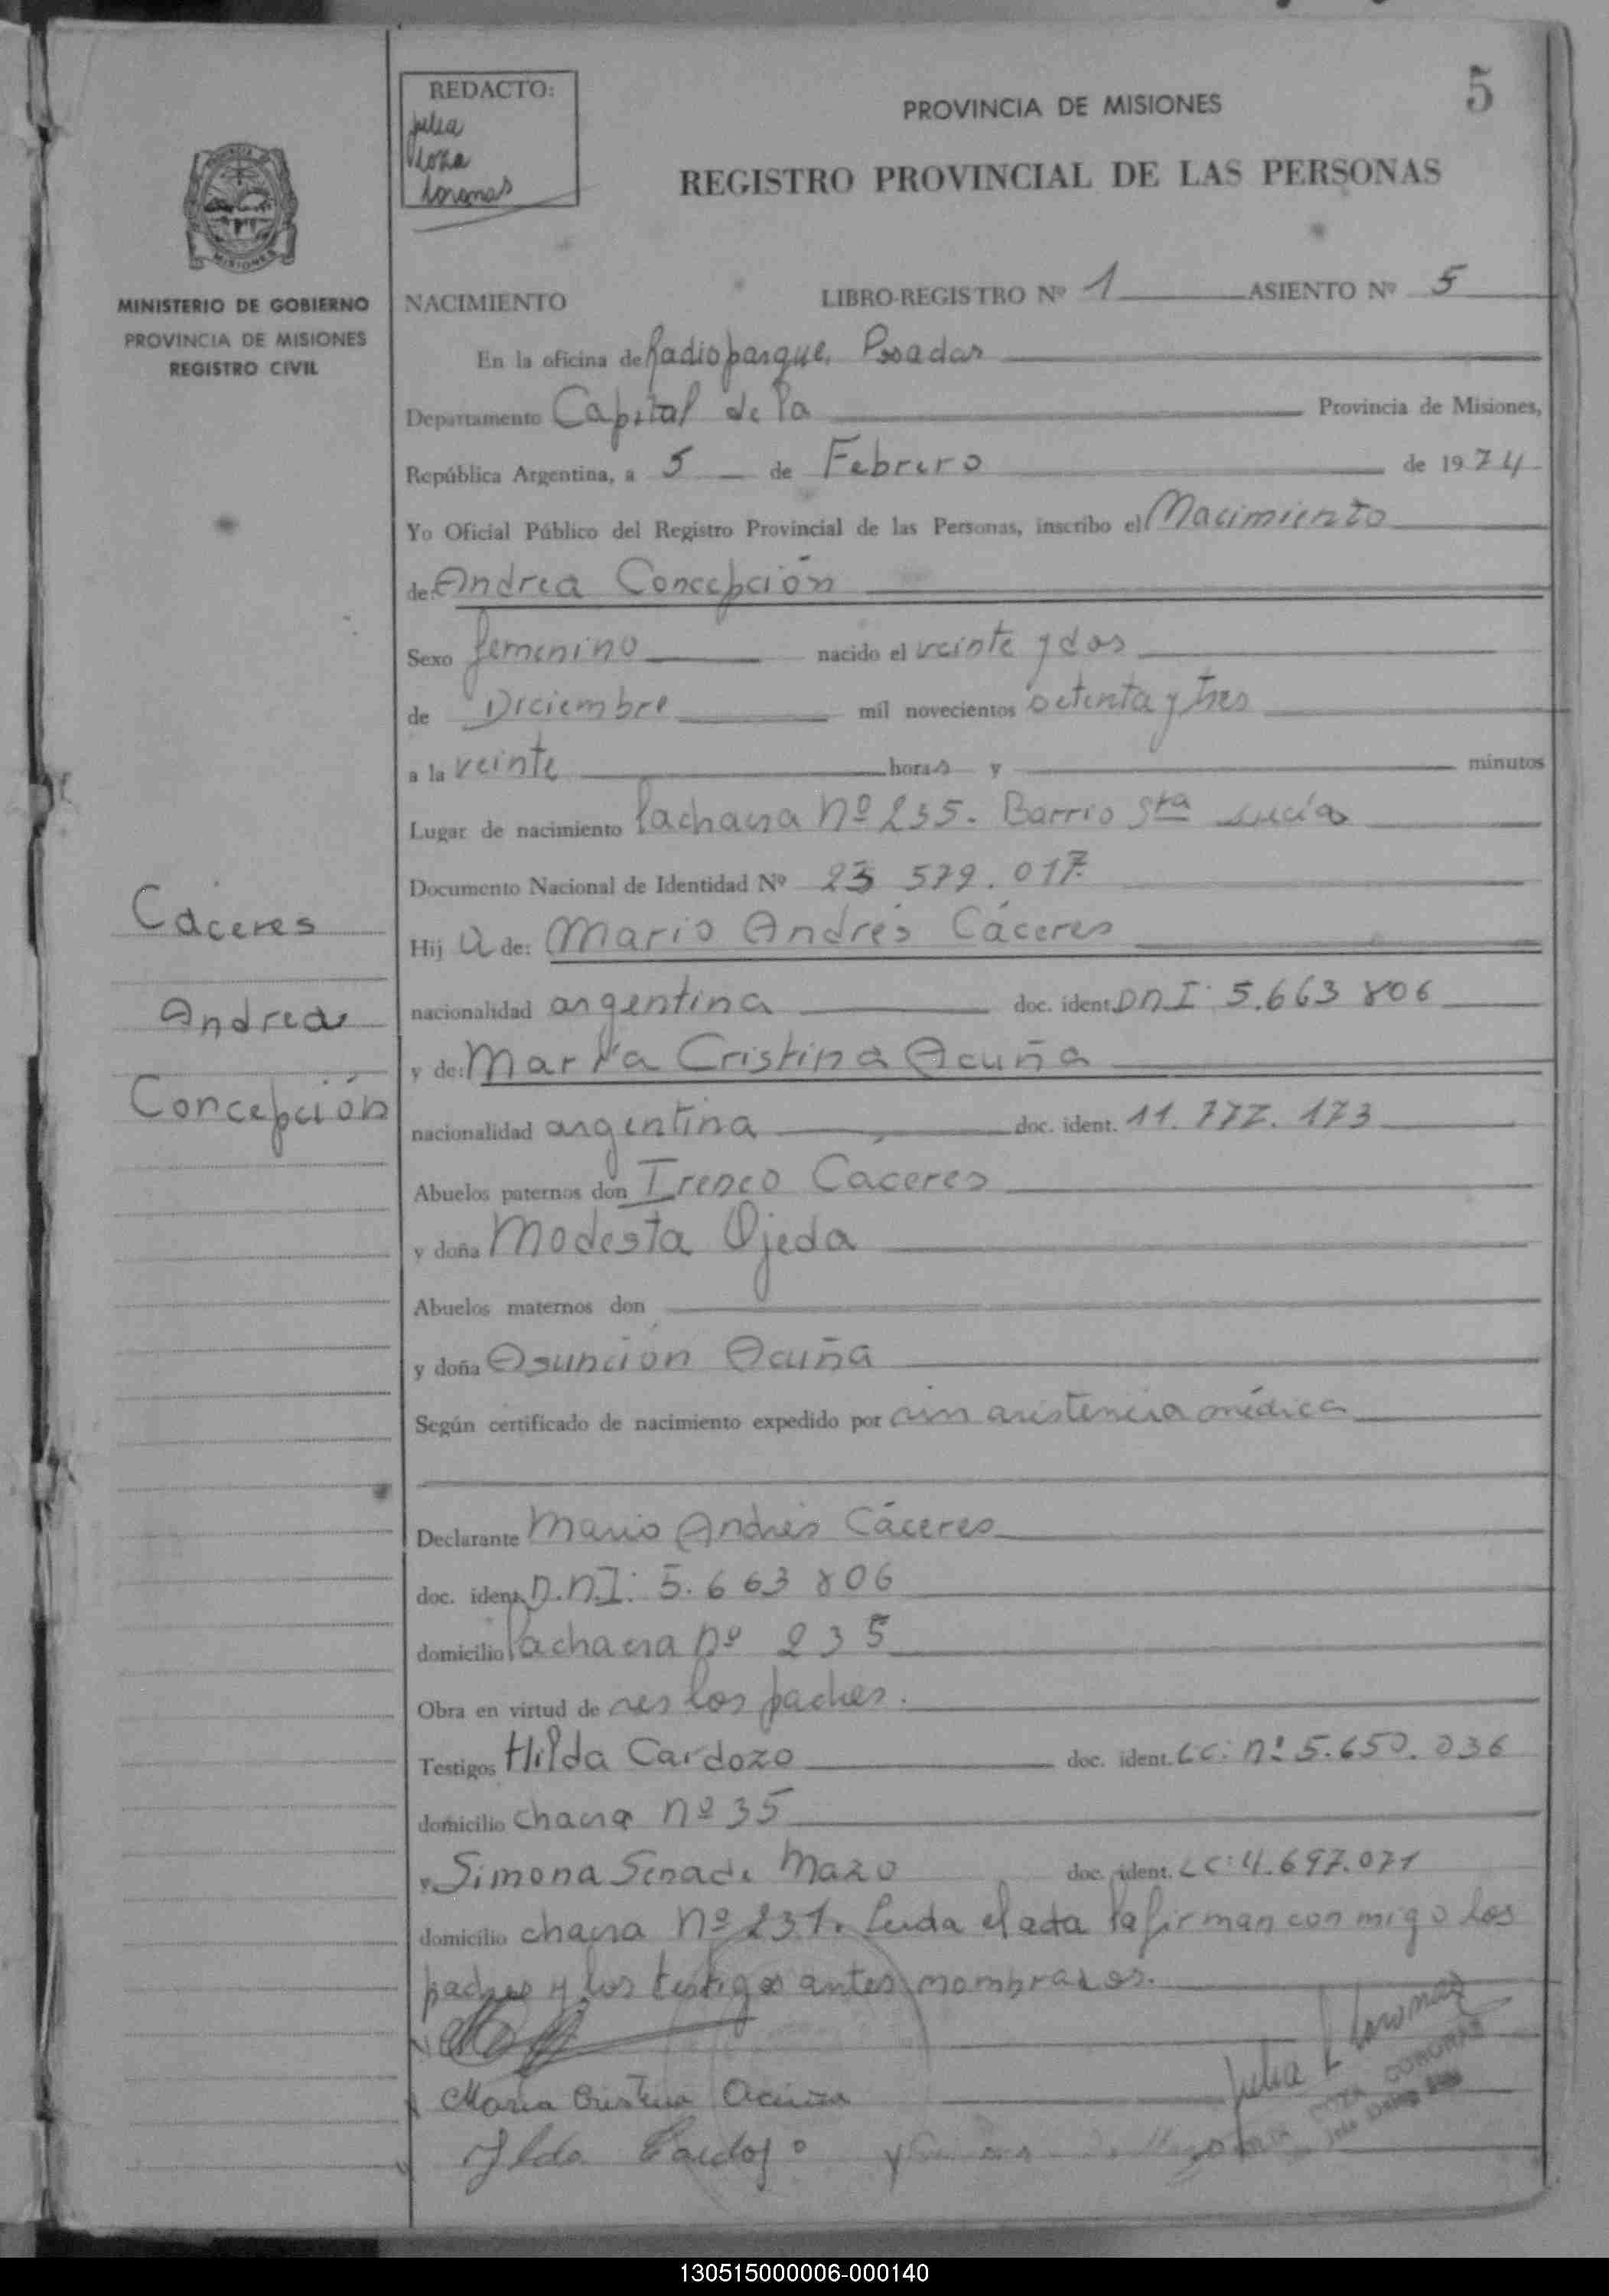 REDACTO:
Julia
Loza
Coronas
5
PROVINCIA DE MISIONES
REGISTRO PROVINCIAL DE LAS PERSONAS
MISIONES
MINISTERIO DE GOBIERNO
PROVINCIA DE MISIONES
REGISTRO CIVIL
NACIMIENTO LIBRO-REGISTRO Nº 1 ASIENTO Nº 5
En la oficina de Radioparque, Posadas
Departamento Capital de la Provincia de Misiones,
República Argentina, a 5 de Febrero de 1974
Yo Oficial Público del Registro Provincial de las Personas, inscribo el Nacimiento
de: Andrea Concepción
Sexo femenino nacido el veinte y dos
de Diciembre mil novecientos setenta y tres
a la veinte horas y minutos
Lugar de nacimiento la chacra nº 235. Barrio Sta Lucía
Documento Nacional de Identidad Nº 23 579.017
Hij a de: Mario Andrés Cáceres
nacionalidad argentina doc. ident. DNI: 5.663 806
y de: María Cristina Acuña
nacionalidad argentina doc. ident. 11.777.173
Abuelos paternos don Ireneo Cáceres
y doña Modesta Ojeda
Abuelos maternos don
y doña Asunción Acuña
Según certificado de nacimiento expedido por sin asistencia médica
Declarante Mario Andrés Cáceres
doc. ident. D.N.I: 5.663 806
domicilio la chacra nº 235
Obra en virtud de ser los padres.
Testigos Hilda Cardozo doc. ident. LC: nº 5.650.036
domicilio chacra nº 35
y Simona Mazo doc. ident. LC: 4.697.071
domicilio chacra nº 231. Leida el acta la firman conmigo los
padres y los testigos antes nombrados.
Julia L Coronas
LOZA CORONAS
María Cristina Acuña
Ilda Cardozo
Caceres
Andrea
Concepción
130515000006-000140